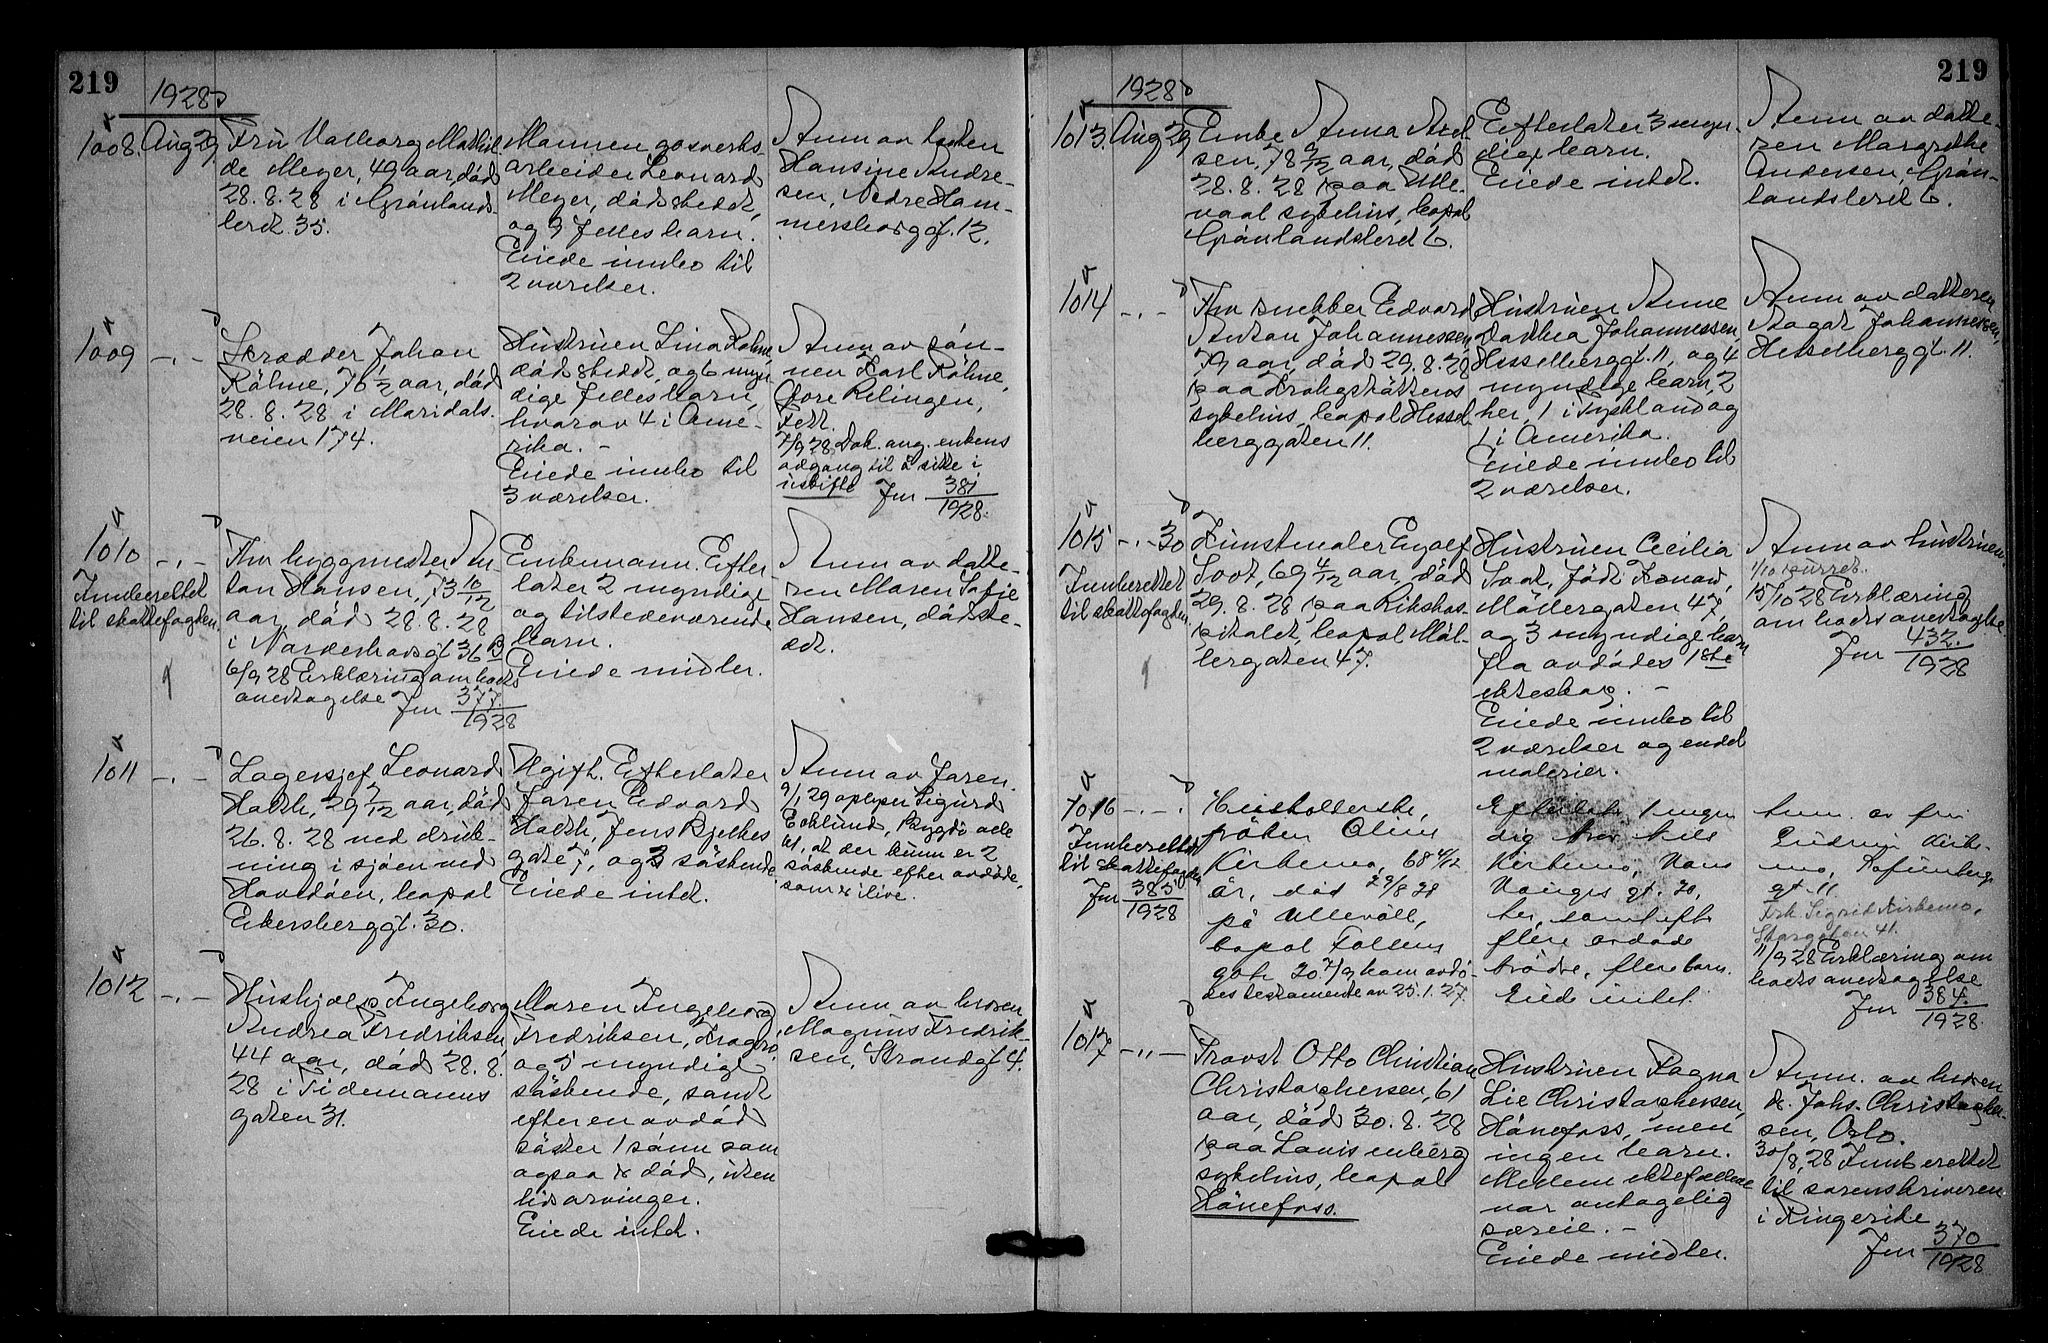 219
1928
1008. Aug 29,
Fru Valborg Mathil-
de Meyer, 49 aar, død
28.8.28 i Grønlands-
leret 35.
Mannen gasverks-
arbeider Leonard
Meyer, dødsstedet,
og 9 fellesbarn.
Eiede innbo til
2 værelser.
Anm av
Hansine Andre-
sen, Nedre Ham-
mersborggt. 12.
1009 -"-
Skrædder Johan
Röhme, 76 1/2 aar, død
28.8.28 i Maridals-
veien 174.
Hustruen Lina Röhme
dødsstedet, og 6 myn-
dige fellesbarn,
hvorav 4 i Ame-
rika. -
Eiede innbo til
3 værelser.
Anm av søn-
nen Karl Röhme,
Øvre Rælingen,
Fetr.
7/9 28 Dok. ang. enkens
adgang til å sitte i
uskifte Jnr 381/1928.
1010 -"-
Innberettet
til skattefogden.
Fhv byggmester An-
ton Hansen, 73 10/12
aar, død 28.8.28
i Nordenhovsgt 36 B
6/9 28 Erklæring om bo
overtagelse Jnr 377/1928
Enkemann. Efter-
later 2 myndige
og tilstedeværende
barn.
Eiede midler.
Anm av datte-
ren Maren Sofie
Hansen, dødsste-
det.
1011 -"-
Lagersjef Leonard
29 7/12 aar, død
26.8.28 ved druk-
ning i sjøen ved
Hovedøen, bopæl
Ekersberggt. 30.
Ugift. Efterlater
faren Edvard
Jens Bjelkes
gate 7, og 3 søskende
Eiede intet.
Anm av faren.
9/1 29 oplyser Sigurd
Ecklund, Bygdø
at der kunn er 2
søskende efter avdøde,
som er i live.
1012 -"-
Hushjelp Ingeborg
Andrea Fredriksen,
44 aar, død 28.8.
28 i Tidemanns
gaten 31.
Moren Ingeborg
Fredriksen, Kragerø,
og 5 myndige
søskende, samt
efter en avdød
søster 1 sønn som
ogsaa er død, uten
livsarvinger.
Eiede intet.
Anm av broren
Magnus Fredrik-
sen, Strandgt 4.
219
1928
1013. Aug 29
Enke Anna
sen, 78 9/12 aar, død
28.8.28 paa Ulle-
vaal sykehus, bopæl
Grønlandsleret 6.
Efterlater 3 myn-
dige barn.
Eiede intet.
Anm av datte-
ren Margrethe
Andersen, Grøn-
landsleret 6.
1014 -"-
Fhv snekker Edvard
Anton Johannessen,
79 aar, død 29.8.28
paa Krohgstøttens
sykehus, bopæl Hessel-
berggaten 11.
Hustruen Anne
Dorthea Johannessen,
Hesselberggt. 11, og 4
myndige barn, 2
her, 1 i Tyskland og
1 i Amerika.
Eiede innbo til
2 værelser.
Anm av datteren
Dagot Johannessen,
Hesselberggt. 11.
1015 -"- 30
Innberettet
til skattefogden.
Kunstmaler Eyolf
Soot, 69 4/12 aar, død
29.8.28 paa Rikshos-
pitalet, bopæl Møl-
lergaten 47.
Hustruen Cecilia
Soot, født
Møllergaten 47,
og 3 myndige barn
fra avdødes 1ste
ekteskap. -
Eiede innbo til
2 værelser og endel
malerier.
Anm av hustruen.
1/10 purret.
15/10 28 Erklæring
om boets overtagelse
Jnr 432/1928
1016 -"-
Innberettet
til skattefogden
Jnr 385/1928
Husholderske,
frøken Oline
Kirkemo, 68 4/12
år, død 29/8 28
på Ullevål,
bopæl Tollbu
gate 20. 7/9 kom avdø-
des testamente av 25.1.27.
Efterlater 1 myn
dig bror Nils
Kirkemo,
gt. 20,
her, samt efter
flere avdøde
brødre, flere barn.
Eiede intet.
Anm. av fru
Kirke-
mo,
gt. 11
Frk. Sigrid Kirkemo,
Storgaten 41.
11/9 28 Erklæring om
boets overtagelse
Jnr 384/1928.
1017 -"-
Provst Otto Christian
Christophersen, 61
aar, død 30.8.28
paa Lovisenberg
sykehus, bopæl
Hønefoss.
Hustruen Ragna
Lie Christophersen,
Hønefoss, men
ingen barn.
Mellem ektefellene
var antagelig
særeie. -
Eiede midler.
Anm. av broren
dr. Johs. Christopher-
sen, Oslo.
30/8 28 Innberettet
til sorenskriveren
i Ringerike
Jnr 370/1928